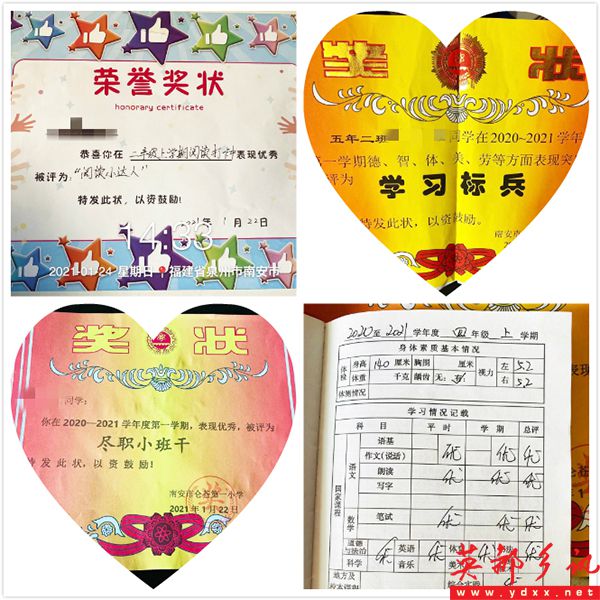 荣誉奖状
honorary certificate
恭喜你在 二年级上学期阅读打卡 表现优秀
被评为:"阅读小达人"
特发此状,以资鼓励!
2021年1月22日
14:33
2021-01-24 星期日 福建省泉州市南安市
奖 状
五年二班 同学在2020~2021学年
第一学期德、智、体、美、劳等方面表现突
评为
学习标兵
特发此状,以资鼓励。
南安市
奖 状
同学:
你在2020—2021学年度第一学期,表现优秀,被评为
尽职小班干
特发此状,以资鼓励!
南安市仑苍第一小学
2021年1月22日
2020至2021学年度 四 年级 上 学期
身体素质基本情况
体检 身高 140 厘米 胸围 厘米 视力 左 5.2
体重 千克 龋齿 无: 有: 右 5.2
体测情况
学习情况记载
科目 平时 学期 总评
国家课程
语文
语基 优 优 优
作文(说话)
朗读 优 优 优
写字
数学 笔试 优 优 优
道德与法治 优 英语 优 体育 优
科学 音乐 美术
地方及
综合实践
英都乡讯
www.ydxx.net